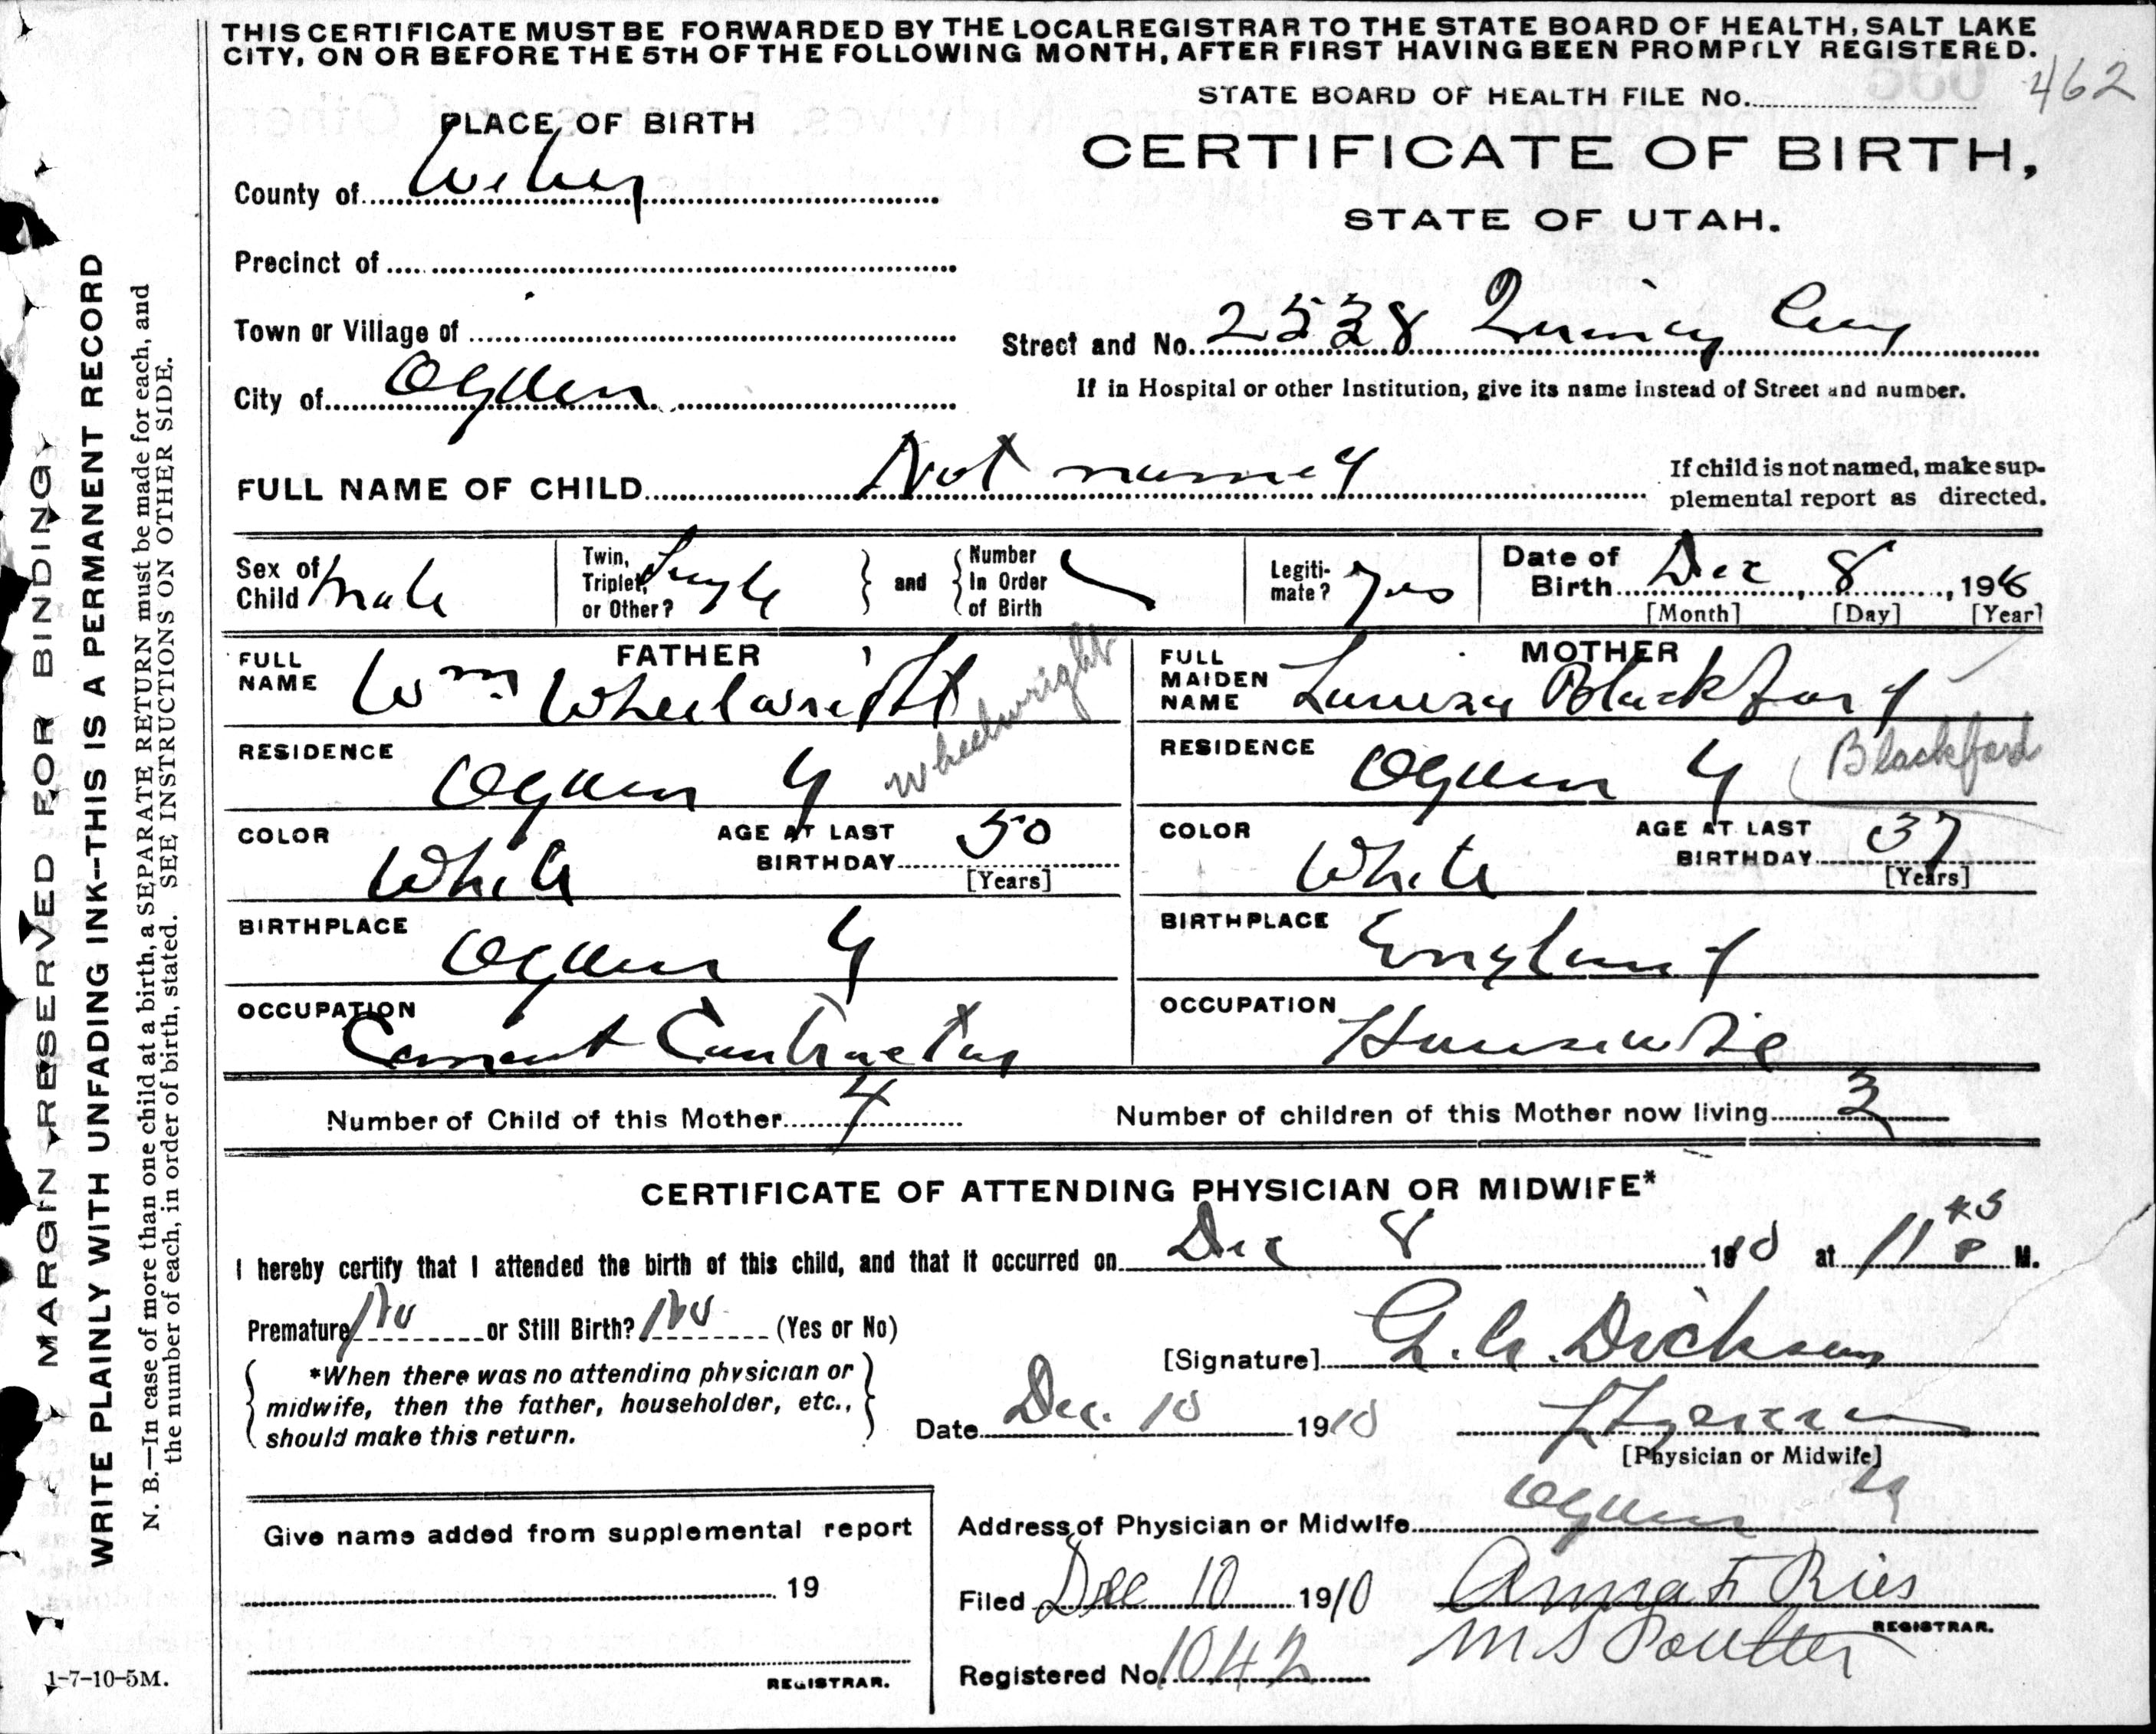 THIS CERTIFICATE MUST BE FORWARDED BY THE LOCAL REGISTRAR TO THE STATE BOARD OF HEALTH, SALT LAKE
CITY, ON OR BEFORE THE 5TH OF THE FOLLOWING MONTH, AFTER FIRST HAVING BEEN PROMPTLY REGISTERED.
STATE BOARD OF HEALTH FILE No. 462
PLACE OF BIRTH
CERTIFICATE OF BIRTH,
STATE OF UTAH.
County of Weber
Precinct of
Town or Village of
Street and No. 2538 Quincy
City of Ogden
If in Hospital or other Institution, give its name instead of Street and number.
FULL NAME OF CHILD Not named
If child is not named, make sup-
plemental report as directed.
Sex of Child Male
Twin, Triplet, or Other? Single
and
Number In Order of Birth
Legiti-mate? Yes
Date of Birth Dec 8, 19
[Month] [Day] [Year]
FATHER
FULL NAME Wm Wheelwright
Wheelwright
RESIDENCE Ogden U
COLOR White
AGE AT LAST BIRTHDAY 50
[Years]
BIRTHPLACE Ogden U
OCCUPATION Cement Contractor
MOTHER
FULL MAIDEN NAME Louisa Blackford
Blackford
RESIDENCE Ogden U
COLOR White
AGE AT LAST BIRTHDAY 37
[Years]
BIRTHPLACE England
OCCUPATION Housewife
Number of Child of this Mother 4
Number of children of this Mother now living 3
CERTIFICATE OF ATTENDING PHYSICIAN OR MIDWIFE*
I hereby certify that I attended the birth of this child, and that it occurred on Dec 8 1910 at 11 45 P M.
Premature No or Still Birth? No (Yes or No)
*When there was no attending physician or
midwife, then the father, householder, etc.,
should make this return.
[Signature] Dickson
Date Dec. 10 1910
[Physician or Midwife]
Address of Physician or Midwife Ogden U
Give name added from supplemental report
19
REGISTRAR.
Filed Dec 10 1910 Anna F Ries
REGISTRAR.
M S Poulter
Registered No. 1042
MARGIN RESERVED FOR BINDING
WRITE PLAINLY WITH UNFADING INK--THIS IS A PERMANENT RECORD
N. B.—In case of more than one child at a birth, a SEPARATE RETURN must be made for each, and
the number of each, in order of birth, stated. SEE INSTRUCTIONS ON OTHER SIDE.
1-7-10-5M.